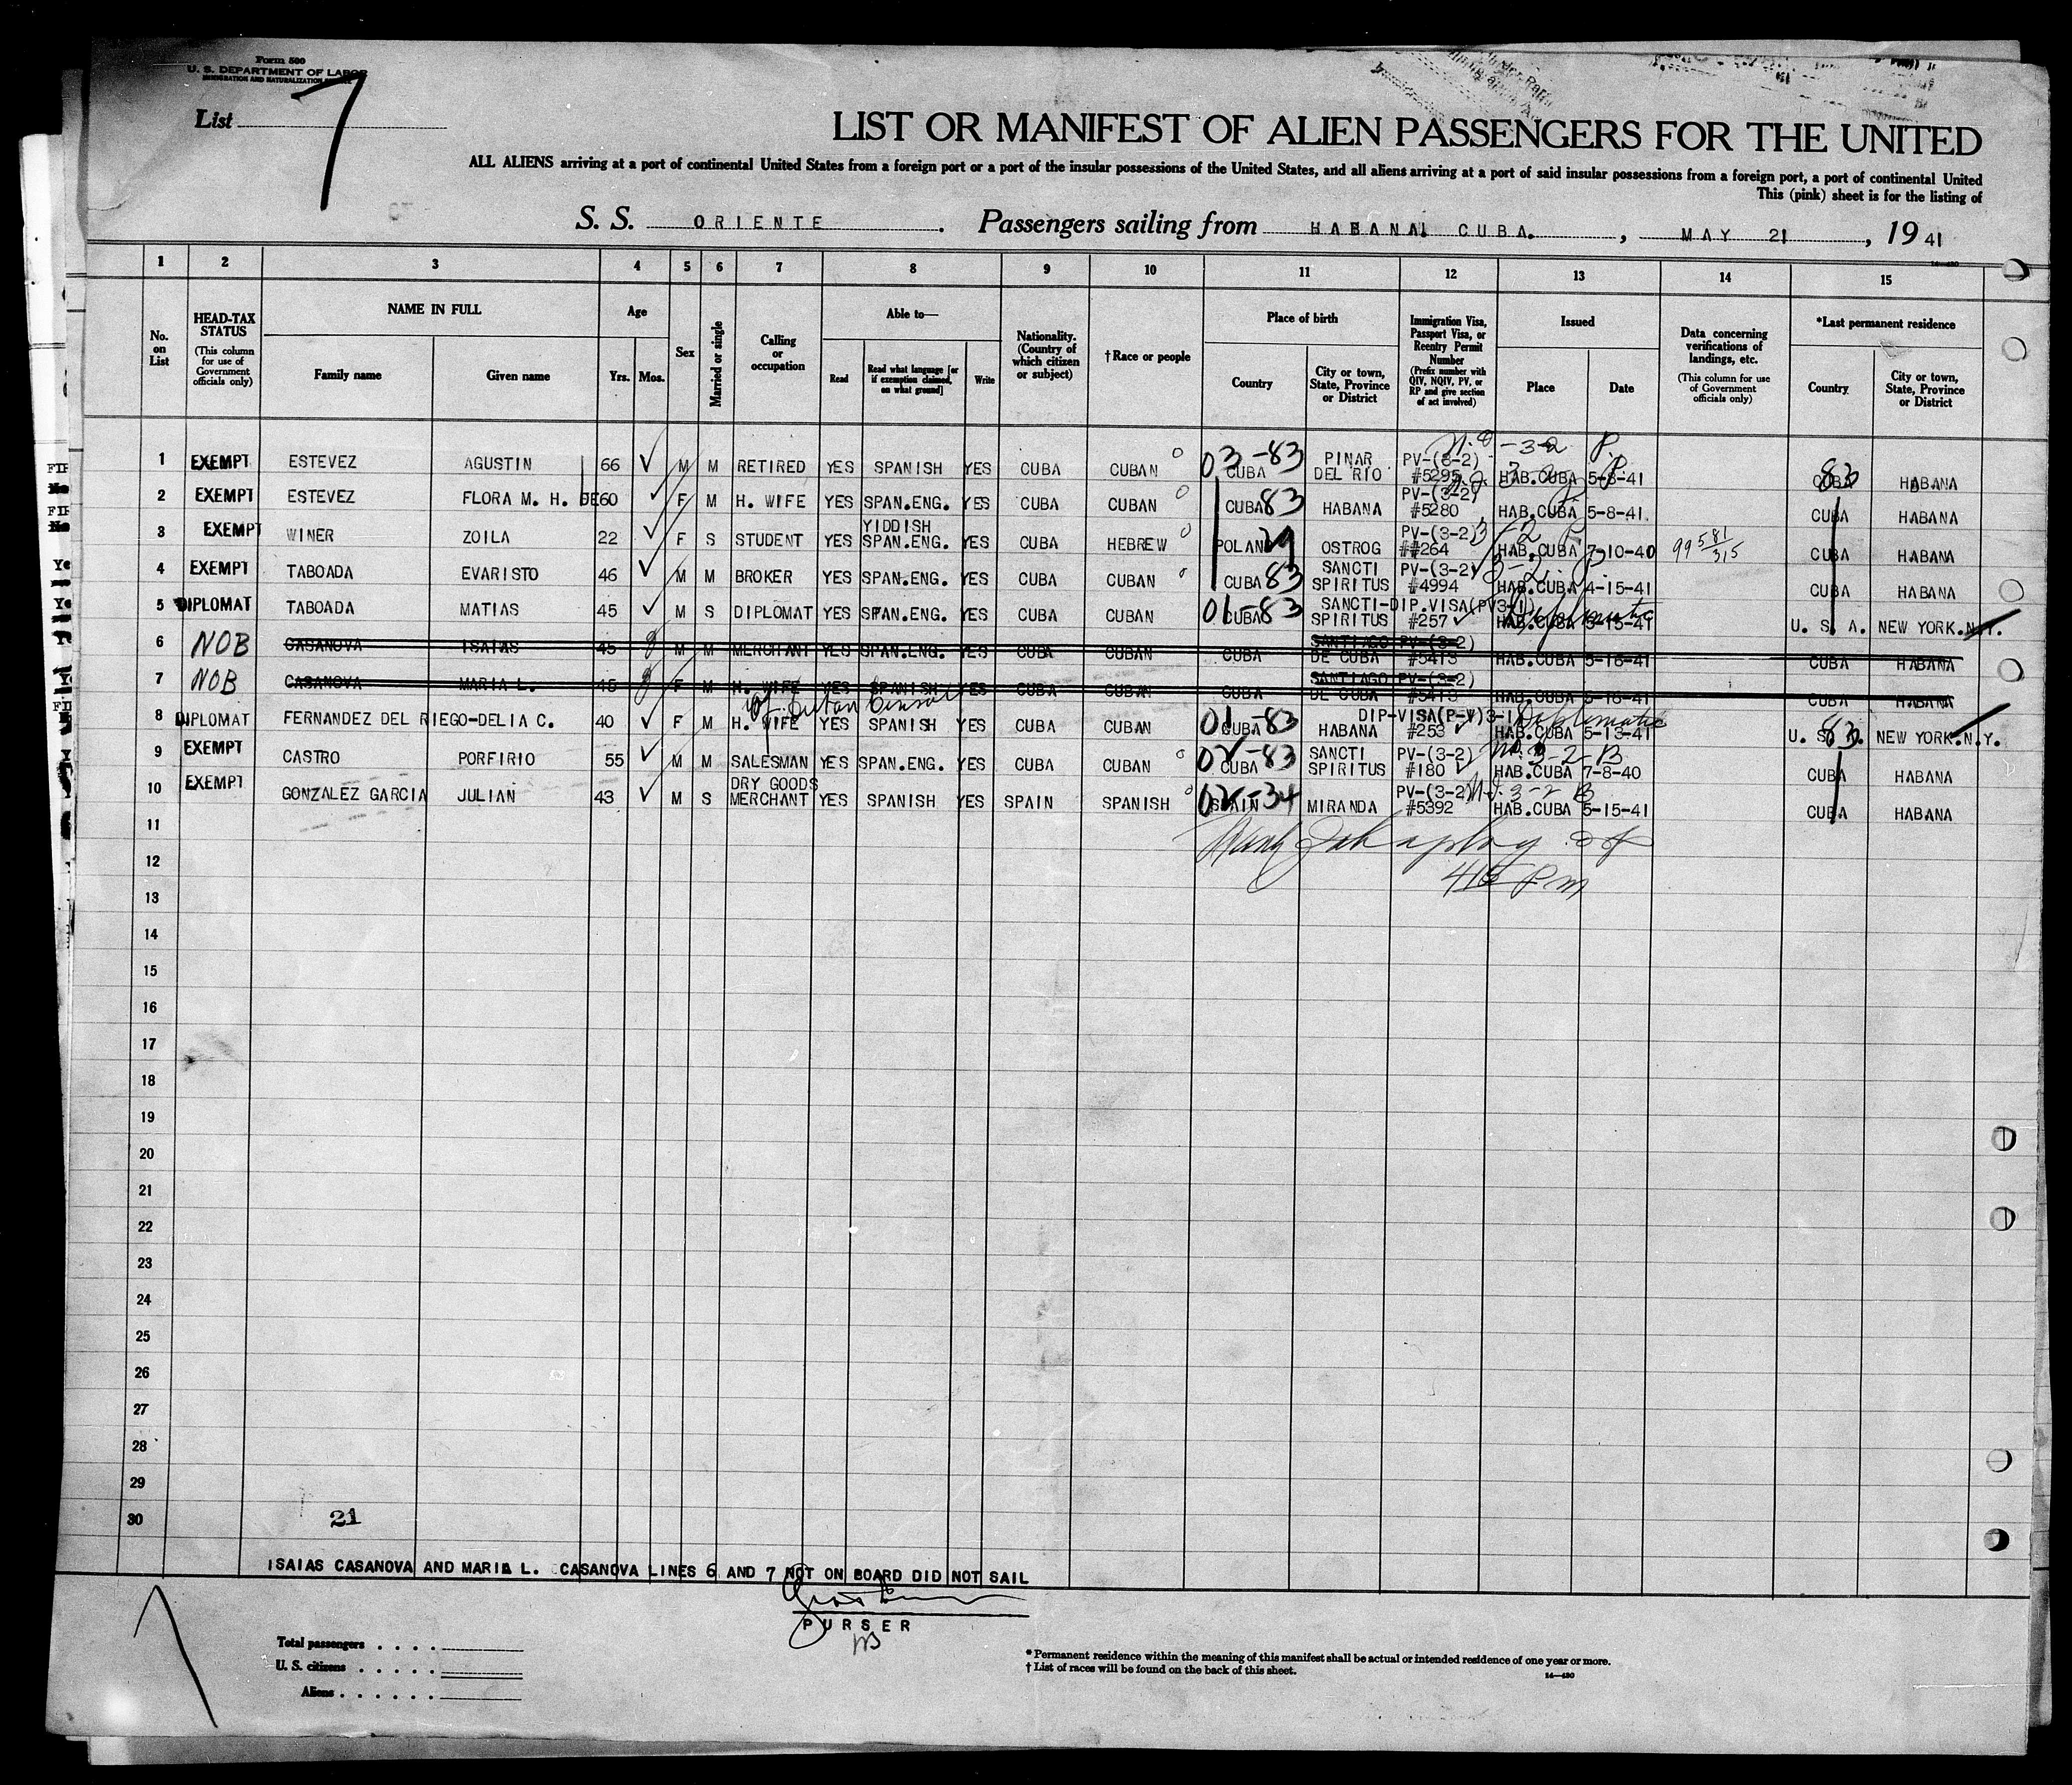 Form 500
U. S. DEPARTMENT OF LABOR
IMMIGRATION AND NATURALIZATION SERVICE
List 7
LIST OR MANIFEST OF ALIEN PASSENGERS FOR THE UNITED
ALL ALIENS arriving at a port of continental United States from a foreign port or a port of the insular possessions of the United States, and all aliens arriving at a port of said insular possessions from a foreign port, a port of continental United
This (pink) sheet is for the listing of
S. S. ORIENTE. Passengers sailing from HABANA, CUBA., MAY 21, 19 41
1 2 3 4 5 6 7 8 9 10 11 12 13 14 15
No. on List
HEAD-TAX STATUS (This column for use of Government officials only)
NAME IN FULL
Family name Given name
Age
Yrs. Mos.
Sex
Married or single
Calling or occupation
Able to—
Read Read what language [or if exemption claimed, on what ground] Write
Nationality. (Country of which citizen or subject)
†Race or people
Place of birth
Country City or town, State, Province or District
Immigration Visa, Passport Visa, or Reentry Permit Number (Prefix number with QIV, NQIV, PV, or RP and give section of act involved)
Issued
Place Date
Data concerning verifications of landings, etc. (This column for use of Government officials only)
*Last permanent residence
Country City or town, State, Province or District
1 EXEMPT ESTEVEZ AGUSTIN 66 M M RETIRED YES SPANISH YES CUBA CUBAN 03-83 CUBA PINAR DEL RIO PV-(3-2) #5295 HAB.CUBA 5-8-41 CUBA 83 HABANA
2 EXEMPT ESTEVEZ FLORA M. H. DE 60 F M H. WIFE YES SPAN.ENG. YES CUBA CUBAN CUBA 83 HABANA PV-(3-2) #5280 HAB.CUBA 5-8-41. CUBA HABANA
3 EXEMPT WINER ZOILA 22 F S STUDENT YES YIDDISH SPAN.ENG. YES CUBA HEBREW POLAND 29 OSTROG PV-(3-2) ##264 HAB.CUBA 7-10-40 99 581/315 CUBA HABANA
4 EXEMPT TABOADA EVARISTO 46 M M BROKER YES SPAN.ENG. YES CUBA CUBAN CUBA 83 SANCTI SPIRITUS PV-(3-2) #4994 HAB.CUBA 4-15-41 CUBA HABANA
5 DIPLOMAT TABOADA MATIAS 45 M S DIPLOMAT YES SPAN.ENG. YES CUBA CUBAN 01-83 CUBA SANCTI-SPIRITUS DIP.VISA(PV3-1) #257 HAB.CUBA 5-15-41 Diplomatic U. S. A. NEW YORK.N.Y.
6 NOB CASANOVA ISAIAS 45 M M MERCHANT YES SPAN.ENG. YES CUBA CUBAN CUBA SANTIAGO DE CUBA PV-(3-2) #5413 HAB.CUBA 5-16-41 CUBA HABANA
7 NOB CASANOVA MARIA L. 45 F M H. WIFE YES SPANISH YES CUBA CUBAN CUBA SANTIAGO DE CUBA PV-(3-2) HAB.CUBA 5-16-41 CUBA HABANA
of Cuban Consul
8 DIPLOMAT FERNANDEZ DEL RIEGO-DELIA C. 40 F M H. WIFE YES SPANISH YES CUBA CUBAN 01-83 CUBA HABANA DIP-VISA(P-V)3-1 #253 HAB.CUBA 5-13-41 Diplomatic U. S. A. 83 NEW YORK.N.Y.
9 EXEMPT CASTRO PORFIRIO 55 M M SALESMAN YES SPAN.ENG. YES CUBA CUBAN 02-83 CUBA SANCTI SPIRITUS PV-(3-2) #180 3-2-B HAB.CUBA 7-8-40 CUBA HABANA
10 EXEMPT GONZALEZ GARCIA JULIAN 43 M S DRY GOODS MERCHANT YES SPANISH YES SPAIN SPANISH 02-34 SPAIN MIRANDA PV-(3-2) #5392 3-2 B HAB.CUBA 5-15-41 CUBA HABANA
11
12
415 Pm
13
14
15
16
17
18
19
20
21
22
23
24
25
26
27
28
29
30 21
ISAIAS CASANOVA AND MARIA L. CASANOVA LINES 6 AND 7 NOT ON BOARD DID NOT SAIL
PURSER
Total passengers . . . .
U. S. citizens . . . . .
Aliens . . . . . .
* Permanent residence within the meaning of this manifest shall be actual or intended residence of one year or more.
† List of races will be found on the back of this sheet.
14—430